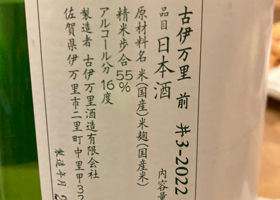 古伊万里 前 #3-2022
品目 日本酒
内容量
原材料名 米(国産)米麹(国産)
精米歩合 55%
アルコール分 16度
製造者 古伊万里酒造有限会社
佐賀県伊万里市二里町中里甲3
製造年月